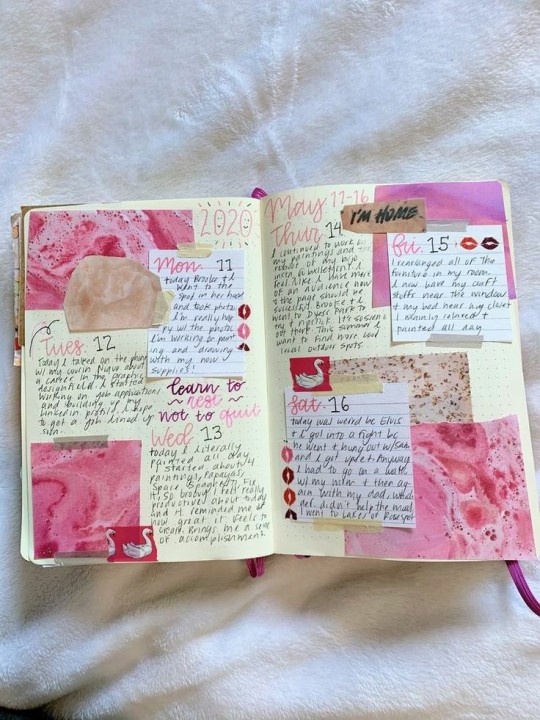 2020
Mon. 11
today Brooke & I
went to the
spot in her hood
and took photos
I'm really hap
py w/ the photos
I'm working on paint
ing and drawing
with my new
supplies!
Tues. 12
Today I talked on the phone
w/ my cousin
a career in the graphic
design field. I started
working on job applications
and building up my
linkedin profile. I hope
to get a job lined up
soon.
learn to
~ rest ~
not to quit
Wed 13
today I literally
painted all day.
I started about 4
paintings, Papaya,
Space,
it, so broody! I felt really
productive about today
and it reminded me of
how great it feels to
create. Brings me a sense
of accomplishment.
May 11-16
I'M HOME.
Thur 14
I continued to work on
my paintings and
feel like I have more
of an audience now
& the page should be
successful. Brooke & I
went to
out there. This summer I
want to find more cool
local outdoor spots.
Fri. 15
I rearranged all of the
furniture in my room.
I now have my craft
stuffs near the window
& my bed near my closet
I mainly relaxed &
painted all day
Sat. 16
today was weird bc Elvis
& I got into a fight bc
he went & hung out w/ Sam
and I got upset. Anyway
I had to go on a walk
w/ my mom & then ag
ain with my dad.
didn't help the mood.
I went to